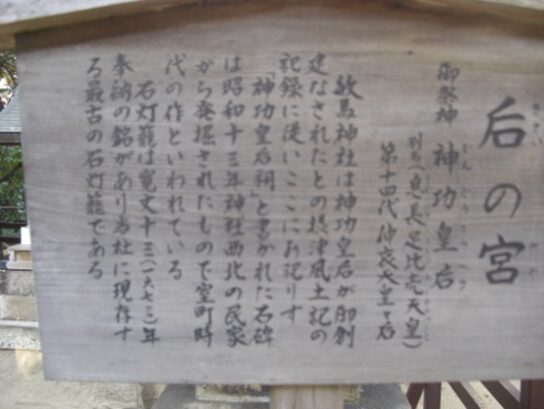 后の宮
きさい みや
御祭神 神功皇后
じんぐうこうごう
別名(息長足比売天皇)
第十四代仲哀天皇の后
敏馬神社は神功皇后が御創
建なされたとの摂津風土記の
記録に従いここにお祀りす
「神功皇后祠」と書かれた石碑
は昭和十三年神社西北の民家
から発掘されたもので室町時
代の作といわれている
石灯籠は寛文十三(一六七三)年
奉納の銘があり当社に現存す
る最古の石灯籠である